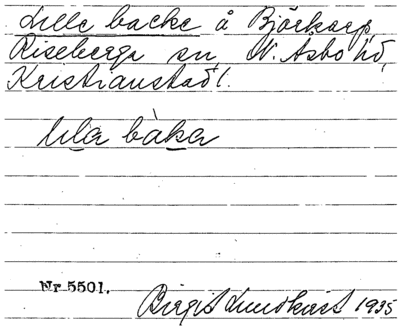 Lille backe å Björkarp
Riseberga sn, N. Åsbo hd,
Kristianstad l.
lila bàka
Nr 5501.
Birgit Lundkvist 1935